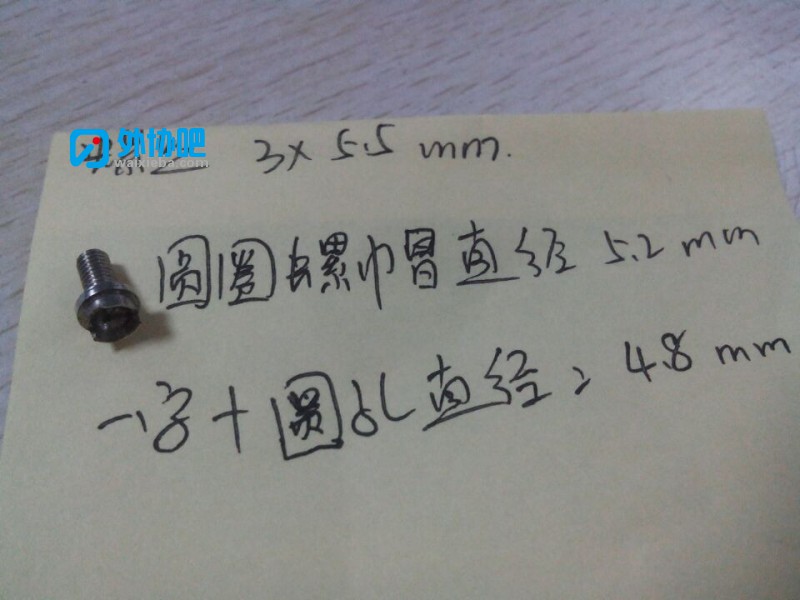 外协吧
waixieba.com
3 x 5.5 mm.
圆圈螺帽直径 5.2 mm
一字十圆孔直径: 4.8 mm